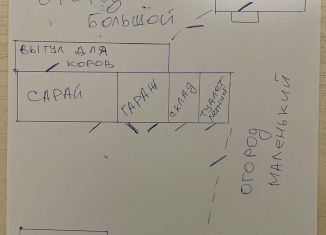 ОГОРОД
БОЛЬШОЙ
ВЫГУЛ ДЛЯ
КОРОВ
САРАЙ
ГАРАЖ
СКЛАД
ТУАЛЕТ
ЛЕТНИЙ
ОГОРОД
МАЛЕНЬКИЙ